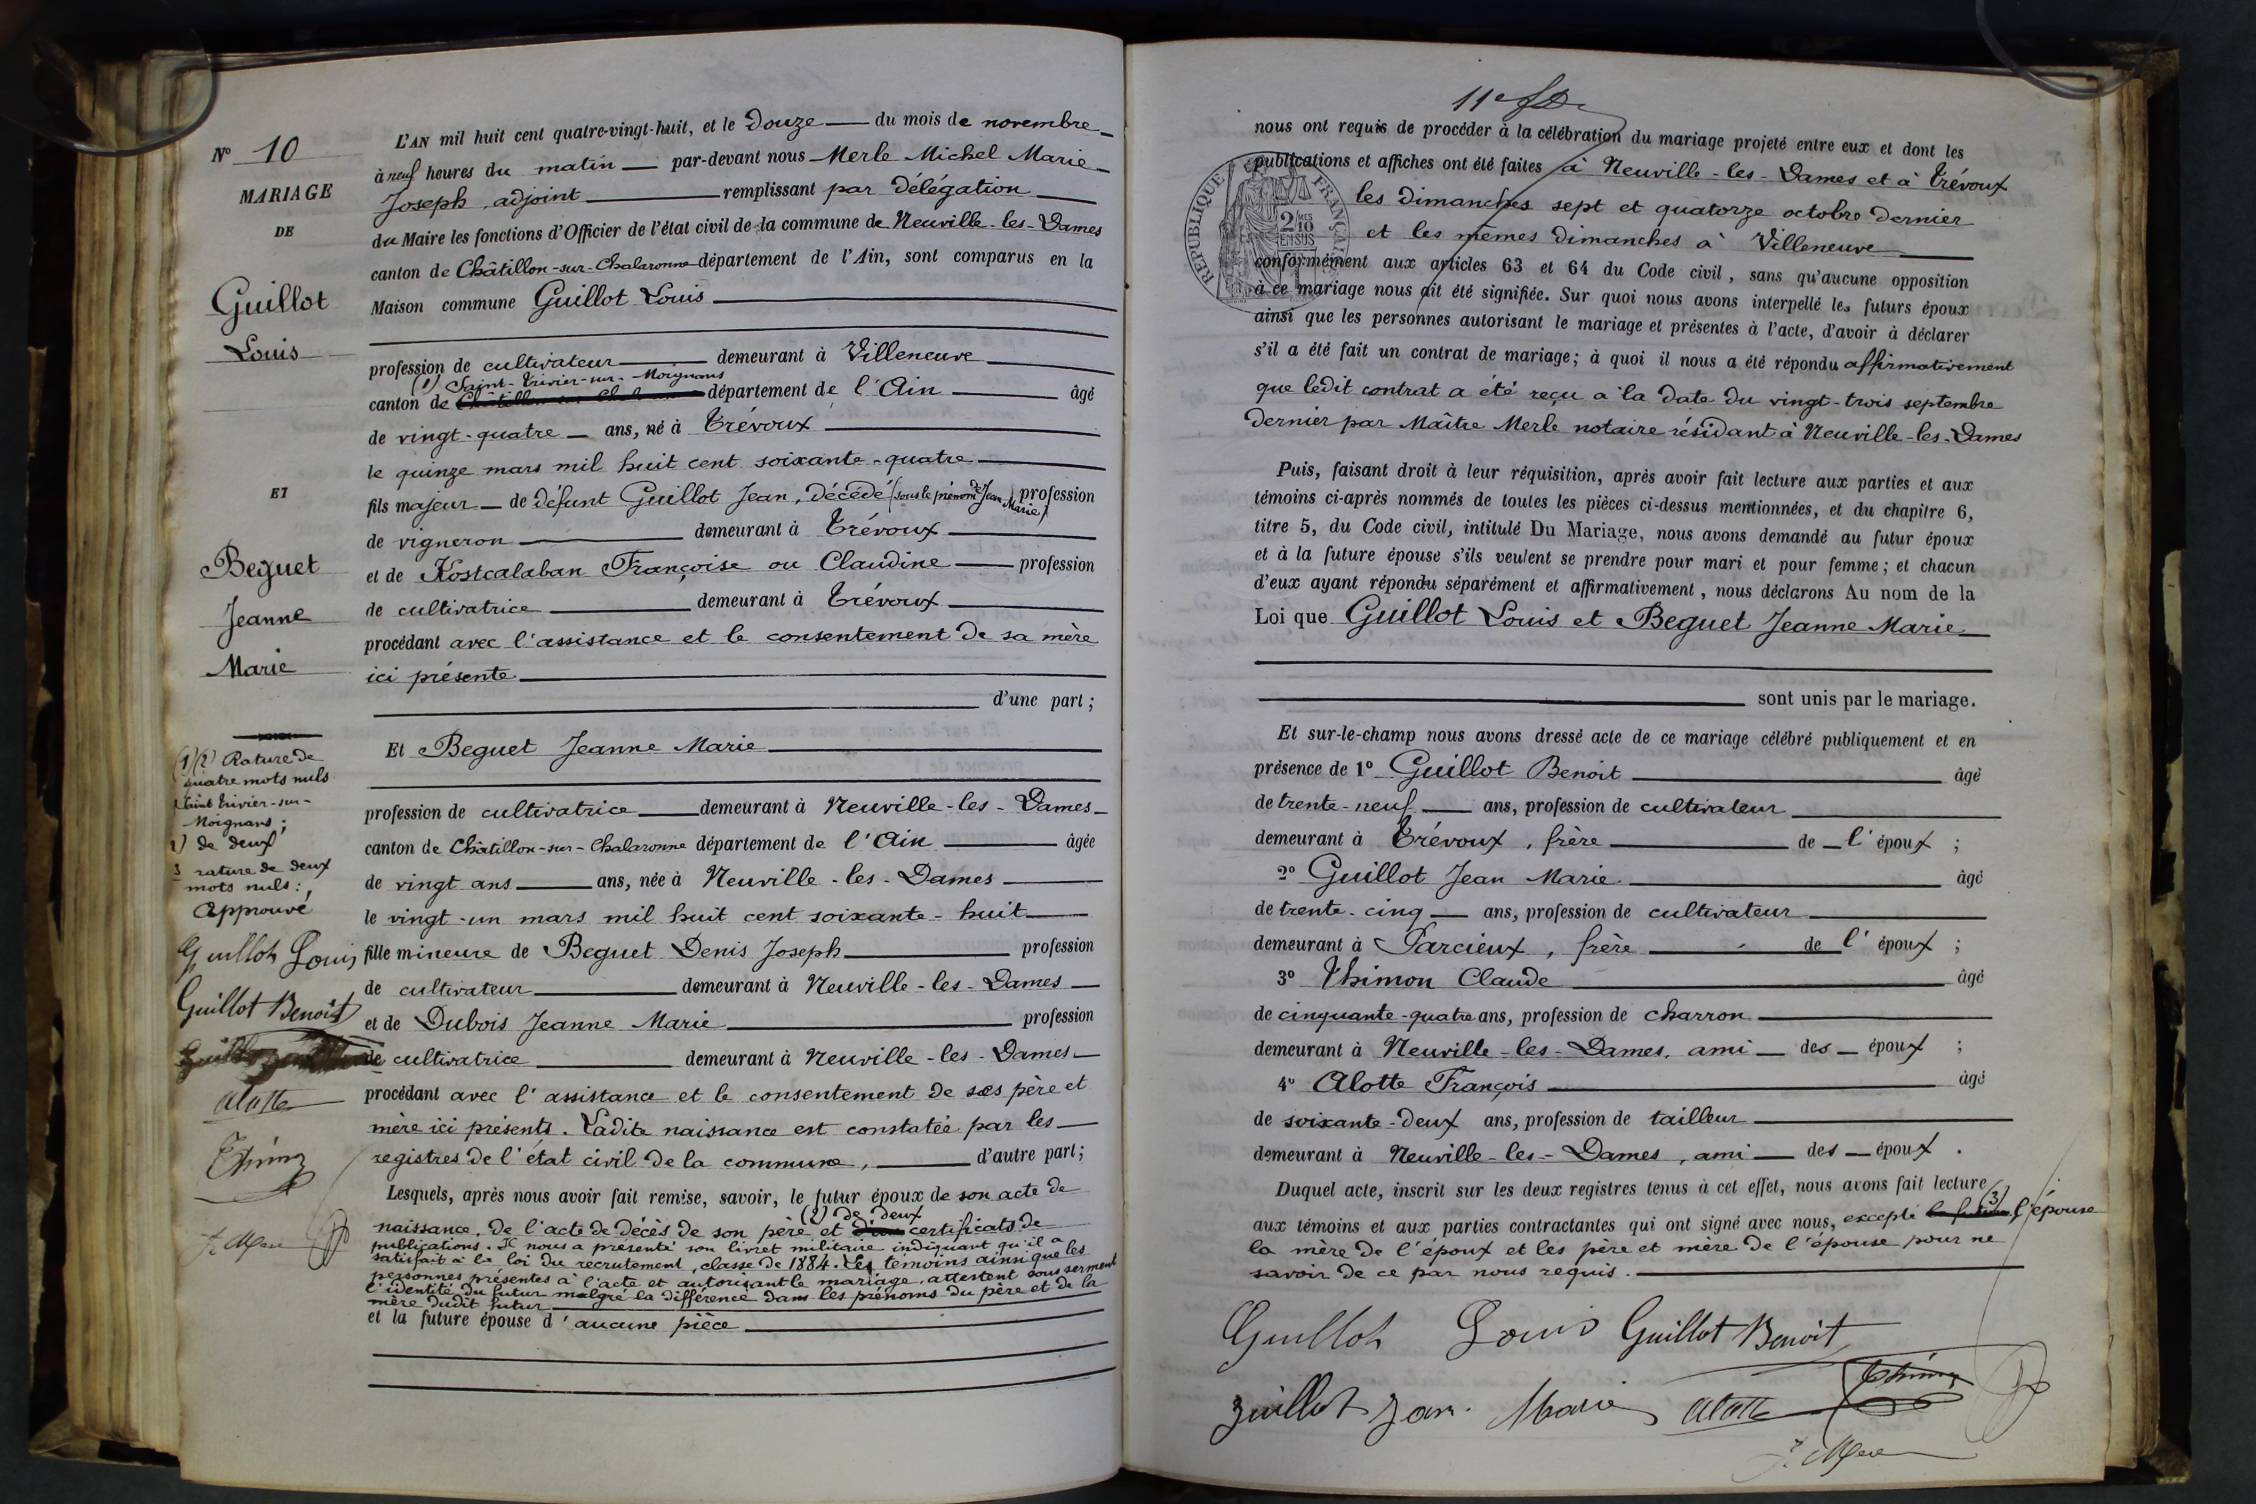 N° 10
MARIAGE
DE
Guillot
Louis
ET
Beguet
Jeanne
Marie
(1)(2) Rature de
quatre mots nuls
Saint Trivier-sur-
Moignans ;
2) de deux
3 rature de deux
mots nuls :
Approuvé
Guillot Louis
Guillot Benoit
Alotte
Thimon
L'AN mil huit cent quatre-vingt-huit, et le douze du mois de novembre
à neuf heures du matin par-devant nous Merle Michel Marie
Joseph, adjoint remplissant par délégation
du Maire les fonctions d'Officier de l'état civil de la commune de Neuville-les-Dames
canton de Châtillon-sur-Chalaronne département de l'Ain, sont comparus en la
Maison commune Guillot Louis
profession de cultivateur demeurant à Villeneuve
(1) Saint-Trivier-sur-Moignans
canton de Châtillon sur Chalaronne département de l'Ain âgé
de vingt-quatre ans, né à Trévoux
le quinze mars mil huit cent soixante-quatre
fils majeur de défunt Guillot Jean, décédé (sous le prénom de Jean Marie) profession
de vigneron demeurant à Trévoux
et de Kostcalaban Françoise ou Claudine profession
de cultivatrice demeurant à Trévoux
procédant avec l'assistance et le consentement de sa mère
ici présente
d'une part ;
Et Beguet Jeanne Marie
profession de cultivatrice demeurant à Neuville-les-Dames
canton de Châtillon-sur-Chalaronne département de l'Ain âgée
de vingt ans ans, née à Neuville-les-Dames
le vingt-un mars mil huit cent soixante-huit
fille mineure de Beguet Denis Joseph profession
de cultivateur demeurant à Neuville-les-Dames
et de Dubois Jeanne Marie profession
de cultivatrice demeurant à Neuville-les-Dames
procédant avec l'assistance et le consentement de ses père et
mère ici présents. Ladite naissance est constatée par les
registres de l'état civil de la commune, d'autre part ;
Lesquels, après nous avoir fait remise, savoir, le futur époux de son acte de
(2) de deux
naissance, de l'acte de décès de son père et certificats de
publications. Il nous a présenté son livret militaire indiquant qu'il a
satisfait à la loi du recrutement, classe de 1884. Les témoins ainsi que les
personnes présentes à l'acte et autorisant le mariage, attestent sous serment
l'identité du futur malgré la différence dans les prénoms du père et de la
mère dudit futur
et la future épouse d'aucune pièce
11e
nous ont requis de procéder à la célébration du mariage projeté entre eux et dont les
publications et affiches ont été faites à Neuville-les-Dames et à Trévoux
les dimanches sept et quatorze octobre dernier
et les mêmes dimanches à Villeneuve
conformément aux articles 63 et 64 du Code civil, sans qu'aucune opposition
à ce mariage nous ait été signifiée. Sur quoi nous avons interpellé les futurs époux
ainsi que les personnes autorisant le mariage et présentes à l'acte, d'avoir à déclarer
s'il a été fait un contrat de mariage ; à quoi il nous a été répondu affirmativement
que ledit contrat a été reçu à la date du vingt-trois septembre
dernier par Maître Merle notaire résidant à Neuville-les-Dames
Puis, faisant droit à leur réquisition, après avoir fait lecture aux parties et aux
témoins ci-après nommés de toutes les pièces ci-dessus mentionnées, et du chapitre 6,
titre 5, du Code civil, intitulé Du Mariage, nous avons demandé au futur époux
et à la future épouse s'ils veulent se prendre pour mari et pour femme ; et chacun
d'eux ayant répondu séparément et affirmativement, nous déclarons Au nom de la
Loi que Guillot Louis et Beguet Jeanne Marie
sont unis par le mariage.
Et sur-le-champ nous avons dressé acte de ce mariage célébré publiquement et en
présence de 1° Guillot Benoit âgé
de trente-neuf ans, profession de cultivateur
demeurant à Trévoux, frère de l'époux ;
2° Guillot Jean Marie âgé
de trente-cinq ans, profession de cultivateur
demeurant à Parcieux, frère de l'époux ;
3° Thimon Claude âgé
de cinquante-quatre ans, profession de charron
demeurant à Neuville-les-Dames, ami des époux ;
4° Alotte François âgé
de soixante-deux ans, profession de tailleur
demeurant à Neuville-les-Dames, ami des époux.
Duquel acte, inscrit sur les deux registres tenus à cet effet, nous avons fait lecture
aux témoins et aux parties contractantes qui ont signé avec nous, excepté (3) l'épouse
la mère de l'époux et les père et mère de l'épouse pour ne
savoir de ce par nous requis.
Guillot Louis Guillot Benoit
Guillot Jean Marie Alotte Thimon
RÉPUBLIQUE FRANÇAISE
2/10 EN SUS